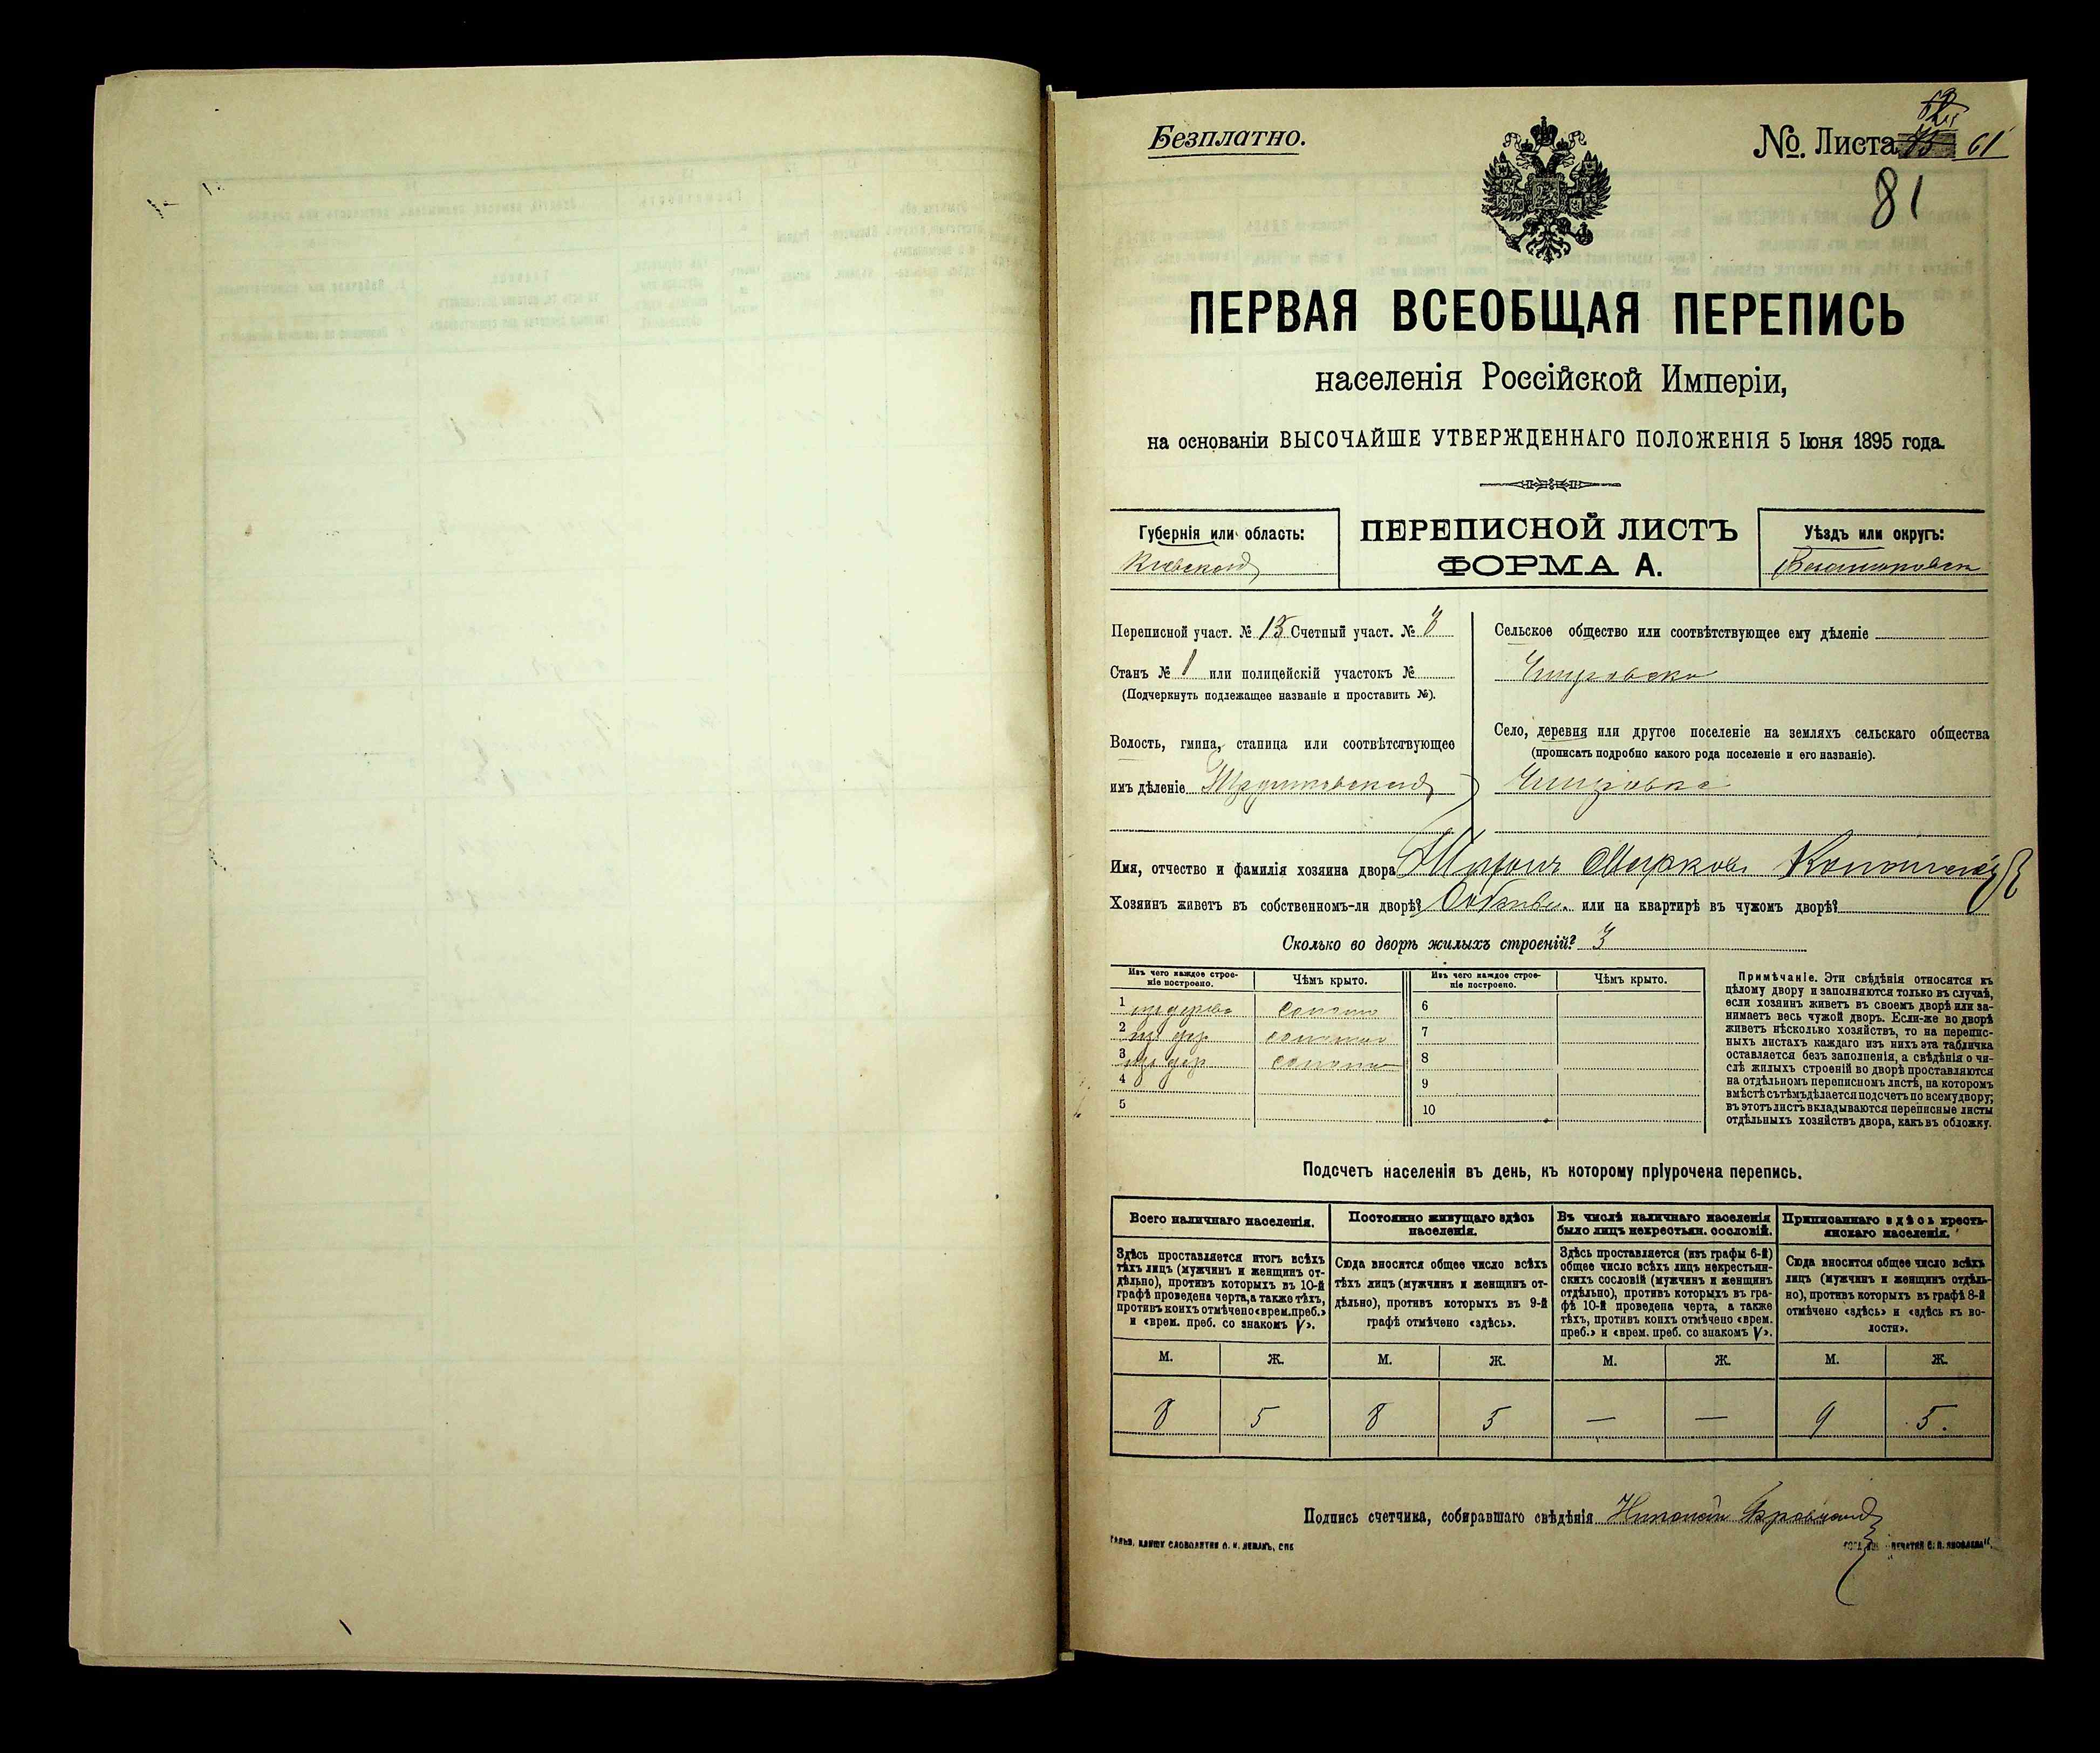 Безплатно.
№. Листа 61
81
ПЕРВАЯ ВСЕОБЩАЯ ПЕРЕПИСЬ
населенія Россійской Имперіи,
на основаніи ВЫСОЧАЙШЕ УТВЕРЖДЕННАГО ПОЛОЖЕНІЯ 5 Іюня 1895 года.
Губернія или область:
Кіевской
ПЕРЕПИСНОЙ ЛИСТЪ
ФОРМА А.
Уѣздъ или округъ:
Переписной участ. № 15 Счетный участ. № 8
Станъ № 1 или полицейскій участокъ №
(Подчеркнуть подлежащее названіе и проставить №).
Волость, гмина, станица или соотвѣтствующее
имъ дѣленіе
Сельское общество или соотвѣтствующее ему дѣленіе
Село, деревня или другое поселеніе на земляхъ сельскаго общества
(прописать подробно какого рода поселеніе и его названіе).
Имя, отчество и фамилія хозяина двора Марковъ
Хозяинъ живетъ въ собственномъ-ли дворѣ? или на квартирѣ въ чужомъ дворѣ?
Сколько во дворѣ жилыхъ строеній? 3
Изъ чего каждое строе-
ніе построено.
Чѣмъ крыто.
Изъ чего каждое строе-
ніе построено.
Чѣмъ крыто.
1 изъ дерева соломою
2 изъ дер соломою
3 изъ дер соломою
4
5
6
7
8
9
10
Примѣчаніе. Эти свѣдѣнія относятся къ
цѣлому двору и заполняются только въ случаѣ,
если хозяинъ живетъ въ своемъ дворѣ или за-
нимаетъ весь чужой дворъ. Если-же во дворѣ
живетъ нѣсколько хозяйствъ, то на перепис-
ныхъ листахъ каждаго изъ нихъ эта табличка
оставляется безъ заполненія, а свѣдѣнія о чи-
слѣ жилыхъ строеній во дворѣ проставляются
на отдѣльномъ переписномъ листѣ, на которомъ
вмѣстѣ съ тѣмъ дѣлается подсчетъ по всему двору;
въ этотъ листъ вкладываются переписные листы
отдѣльныхъ хозяйствъ двора, какъ въ обложку.
Подсчетъ населенія въ день, къ которому пріурочена перепись.
Всего наличнаго населенія.
Здѣсь проставляется итогъ всѣхъ
тѣхъ лицъ (мужчинъ и женщинъ от-
дѣльно), противъ которыхъ въ 10-й
графѣ проведена черта, а также тѣхъ,
противъ коихъ отмѣчено «врем. преб.»
и «врем. преб. со знакомъ V».
Постоянно живущаго здѣсь
населенія.
Сюда вносится общее число всѣхъ
тѣхъ лицъ (мужчинъ и женщинъ от-
дѣльно), противъ которыхъ въ 9-й
графѣ отмѣчено «здѣсь».
Въ числѣ наличнаго населенія
было лицъ некрестьян. сословій.
Здѣсь проставляется (изъ графы 6-й)
общее число всѣхъ лицъ некрестьян-
скихъ сословій (мужчинъ и женщинъ
отдѣльно), противъ которыхъ въ гра-
фѣ 10-й проведена черта, а также
тѣхъ, противъ коихъ отмѣчено «врем.
преб.» и «врем. преб. со знакомъ V».
Приписаннаго здѣсь кресть-
янскаго населенія.
Сюда вносится общее число всѣхъ
лицъ (мужчинъ и женщинъ отдѣль-
но), противъ которыхъ въ графѣ 8-й
отмѣчено «здѣсь» и «здѣсь къ во-
лости».
М. Ж. М. Ж. М. Ж. М. Ж.
8 5 8 5 — — 9 5.
Подпись счетчика, собиравшаго свѣдѣнія Николай